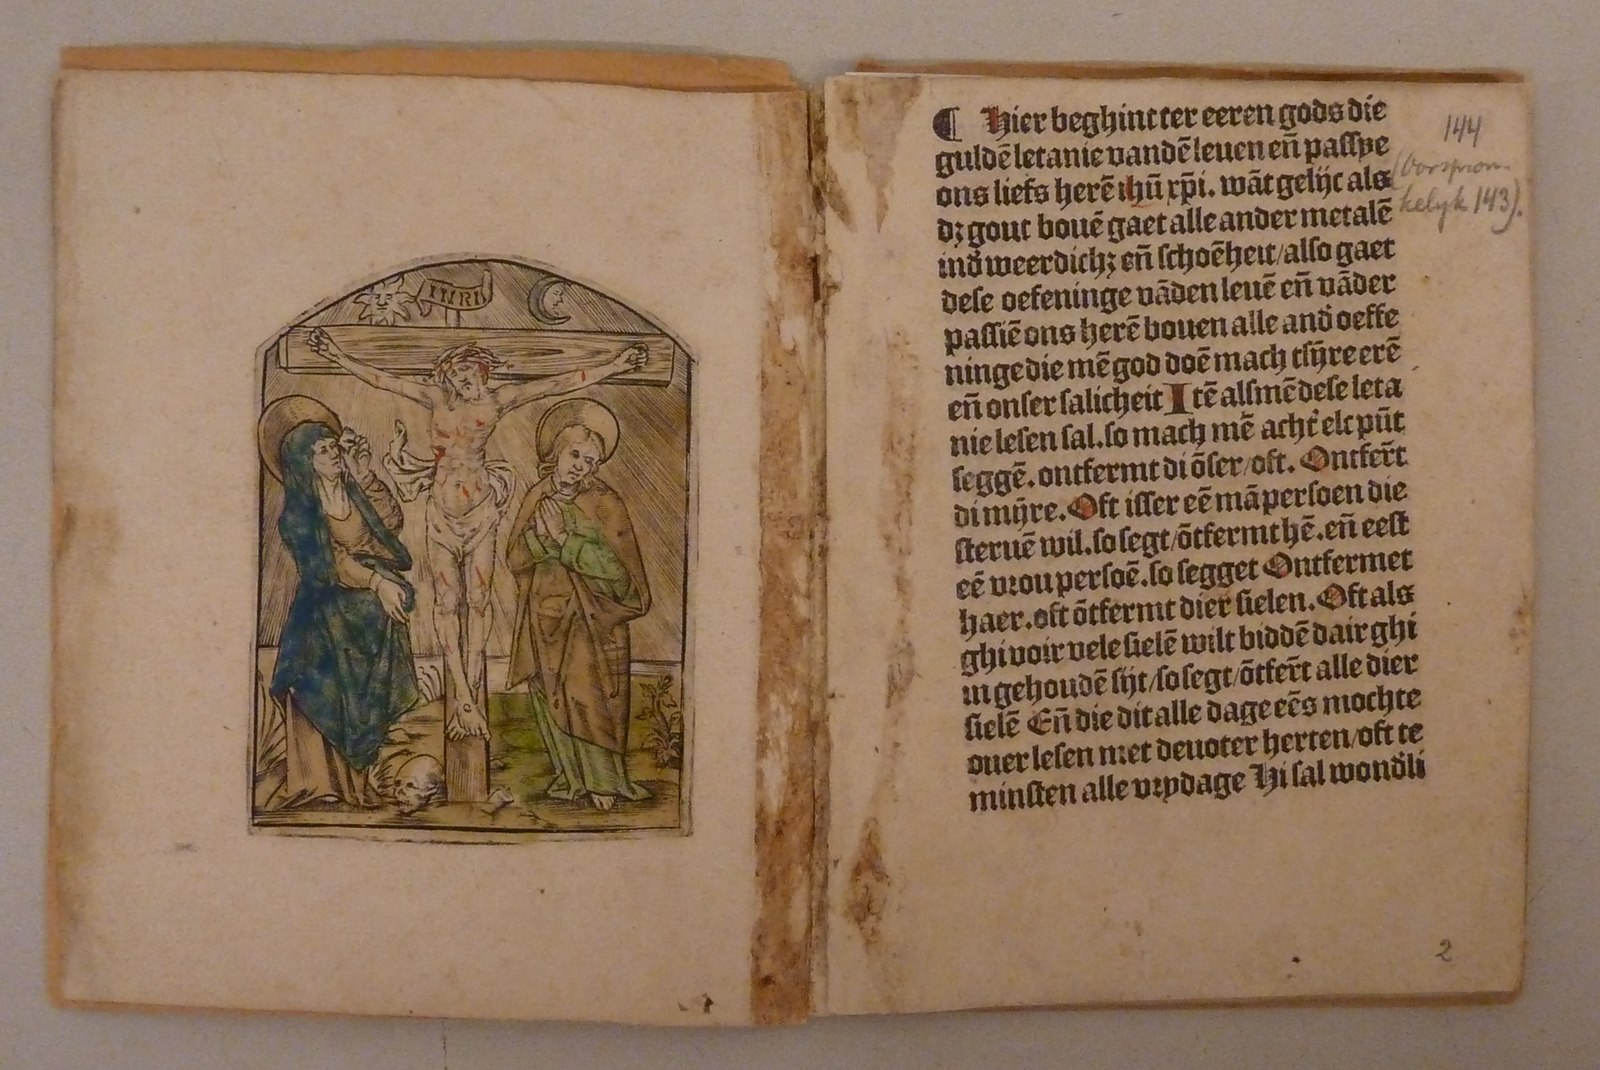 INRI
¶ Hier beghint ter eeren gods die
guldē letanie vandē leuen eñ passye
ons liefs herē ihū xp̄i. wāt gelijc als
dꝫ gout bouē gaet alle ander metalē
ind̉ weerdichꝫ eñ schoēheit/also gaet
dese oefeninge vāden leuē eñ vāder
passiē ons herē bouen alle and̉ oeffe
ninge die mē god doē mach tsijre erē
eñ onser salicheit Itē alsmē dese leta
nie lesen sal. so mach mē acht̉ elc pūt
seggē. ontfermt di ōser/oft. Ontfer̄t
di mijre. Oft isser eē mā persoen die
steruē wil. so segt/ōtfermt hē. eñ eest
eē vrou persoē. so segget Ontfermet
haer. oft ōtfermt dier sielen. Oft als
ghi voir vele sielē wilt biddē dair ghi
in gehoudē sijt/so segt/ōtfer̄t alle dier
sielē Eñ die dit alle dage eēs mochte
ouer lesen met deuoter herten/oft te
minsten alle vrydage Hi sal wond̉li
144
(Oorspron-
kelyk 143).
2